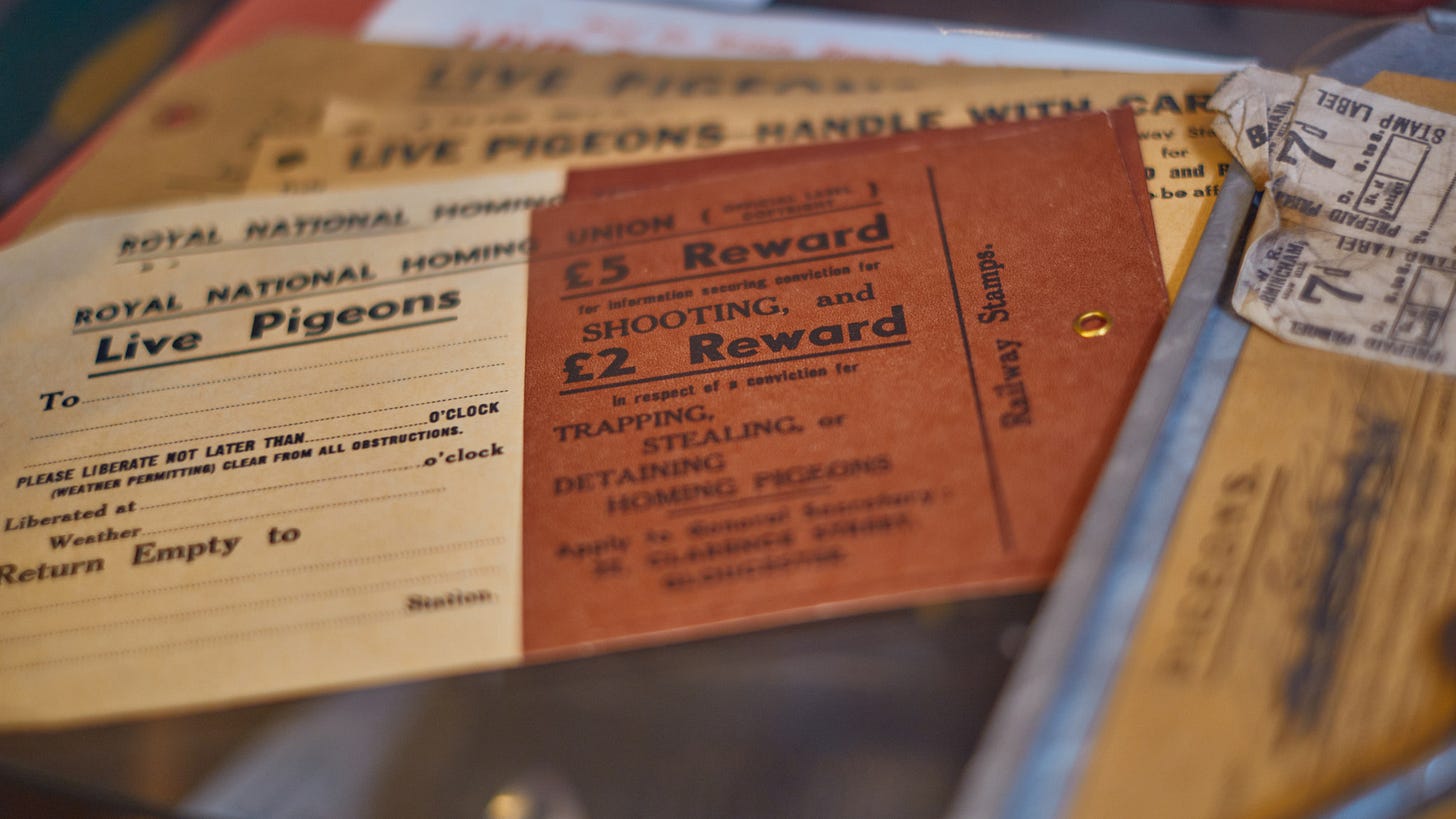 LIVE PIGEONS
LIVE PIGEONS HANDLE WITH CAR
for
and
be
ROYAL NATIONAL HOMING
ROYAL NATIONAL HOMING UNION (OFFICIAL LABEL COPYRIGHT)
Live Pigeons
To
PLEASE LIBERATE NOT LATER THAN O'CLOCK
(WEATHER PERMITTING) CLEAR FROM ALL OBSTRUCTIONS.
Liberated at o'clock
Weather
Return Empty to
Station
£5 Reward
for information securing conviction for
SHOOTING, and
£2 Reward
In respect of a conviction for
TRAPPING,
STEALING, or
DETAINING
HOMING PIGEONS
Apply to General Secretary:
CLARENCE STREET,
GLOUCESTER
Railway Stamps.
STAMP LABEL
7d
PREPAID
STAMP LABEL
7d
PREPAID
PIGEONS